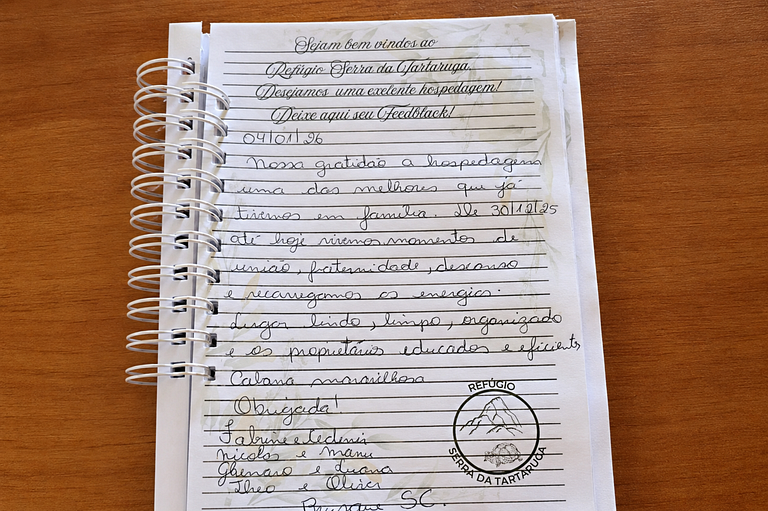 Sejam bem vindos ao
Refúgio Serra da Tartaruga,
Desejamos uma exelente hospedagem!
Deixe aqui seu Feedback!
04/01/26
Nossa gratidão a hospedagem
uma das melhores que já
tivemos em família. De 30/12/25
até hoje vivemos momentos de
união, fraternidade, descanso
e recarregamos as energias.
Lugar lindo, limpo, organizado
e os proprietários educados e eficientes
Cabana maravilhosa
Obrigada!
e
Nicolas e Manu
e Luana
Theo e Oliver
Brusque SC.
REFÚGIO
SERRA DA TARTARUGA